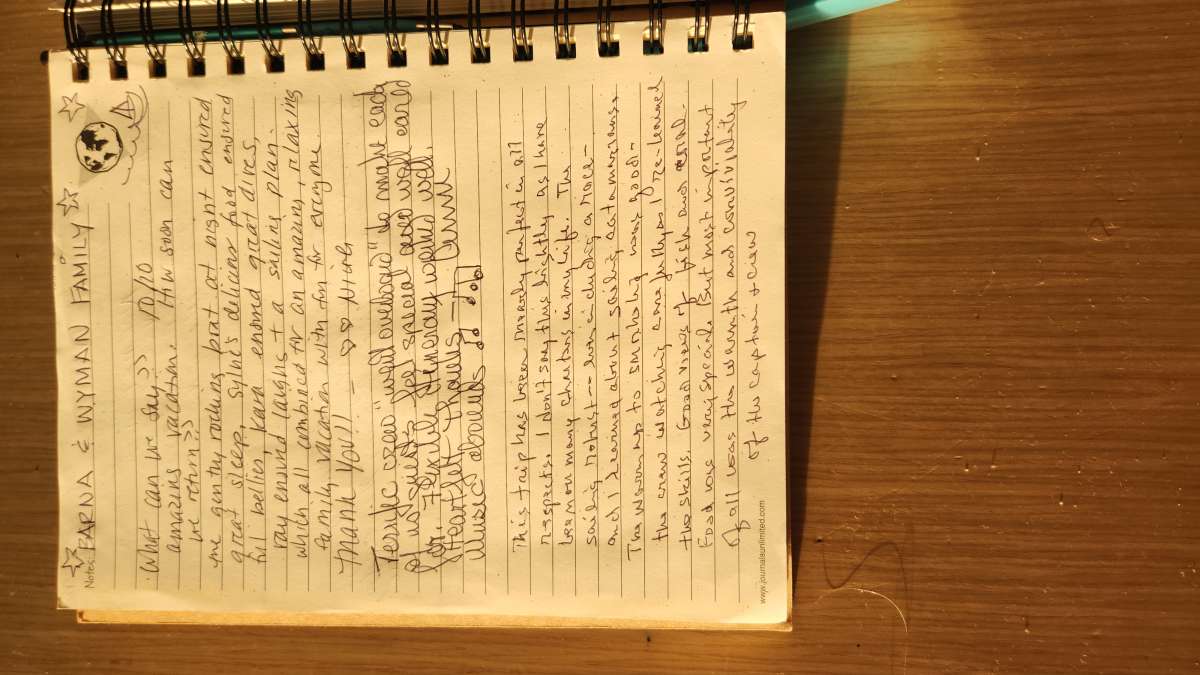 ☆ PARNA & WYMAN FAMILY ☆ ☆
Notes:
What can we say?? 10/10
amazing vacation. How soon can
we return??
The gently rocking boat at night ensured
great sleep, Sylvie's delicious food ensured
full bellies, Kara ensured great dives,
Ray ensured laughs & a sailing plan
which all combined for an amazing, relaxing
family vacation with fun for everyone.
Thank You!! – ♡♡ Nions
Terrific crew "went overboard" to make each
of us guests feel special and well cared
for. Flexible itinerary worked well.
Heartfelt thanks –
Music abounds
This trip has been nearly perfect in all
respects. I don't say this lightly as I have
been on many charters in my life. The
sailing robust -- even including a race -
and I learned about sailing catamarans.
The warm up to snorkeling was good -
the crew watching carefully as I re-learned
the skills. Good views of fish and coral.
Food was very special. But most important
of all was the warmth and conviviality
of the captain + crew
www.journalsunlimited.com